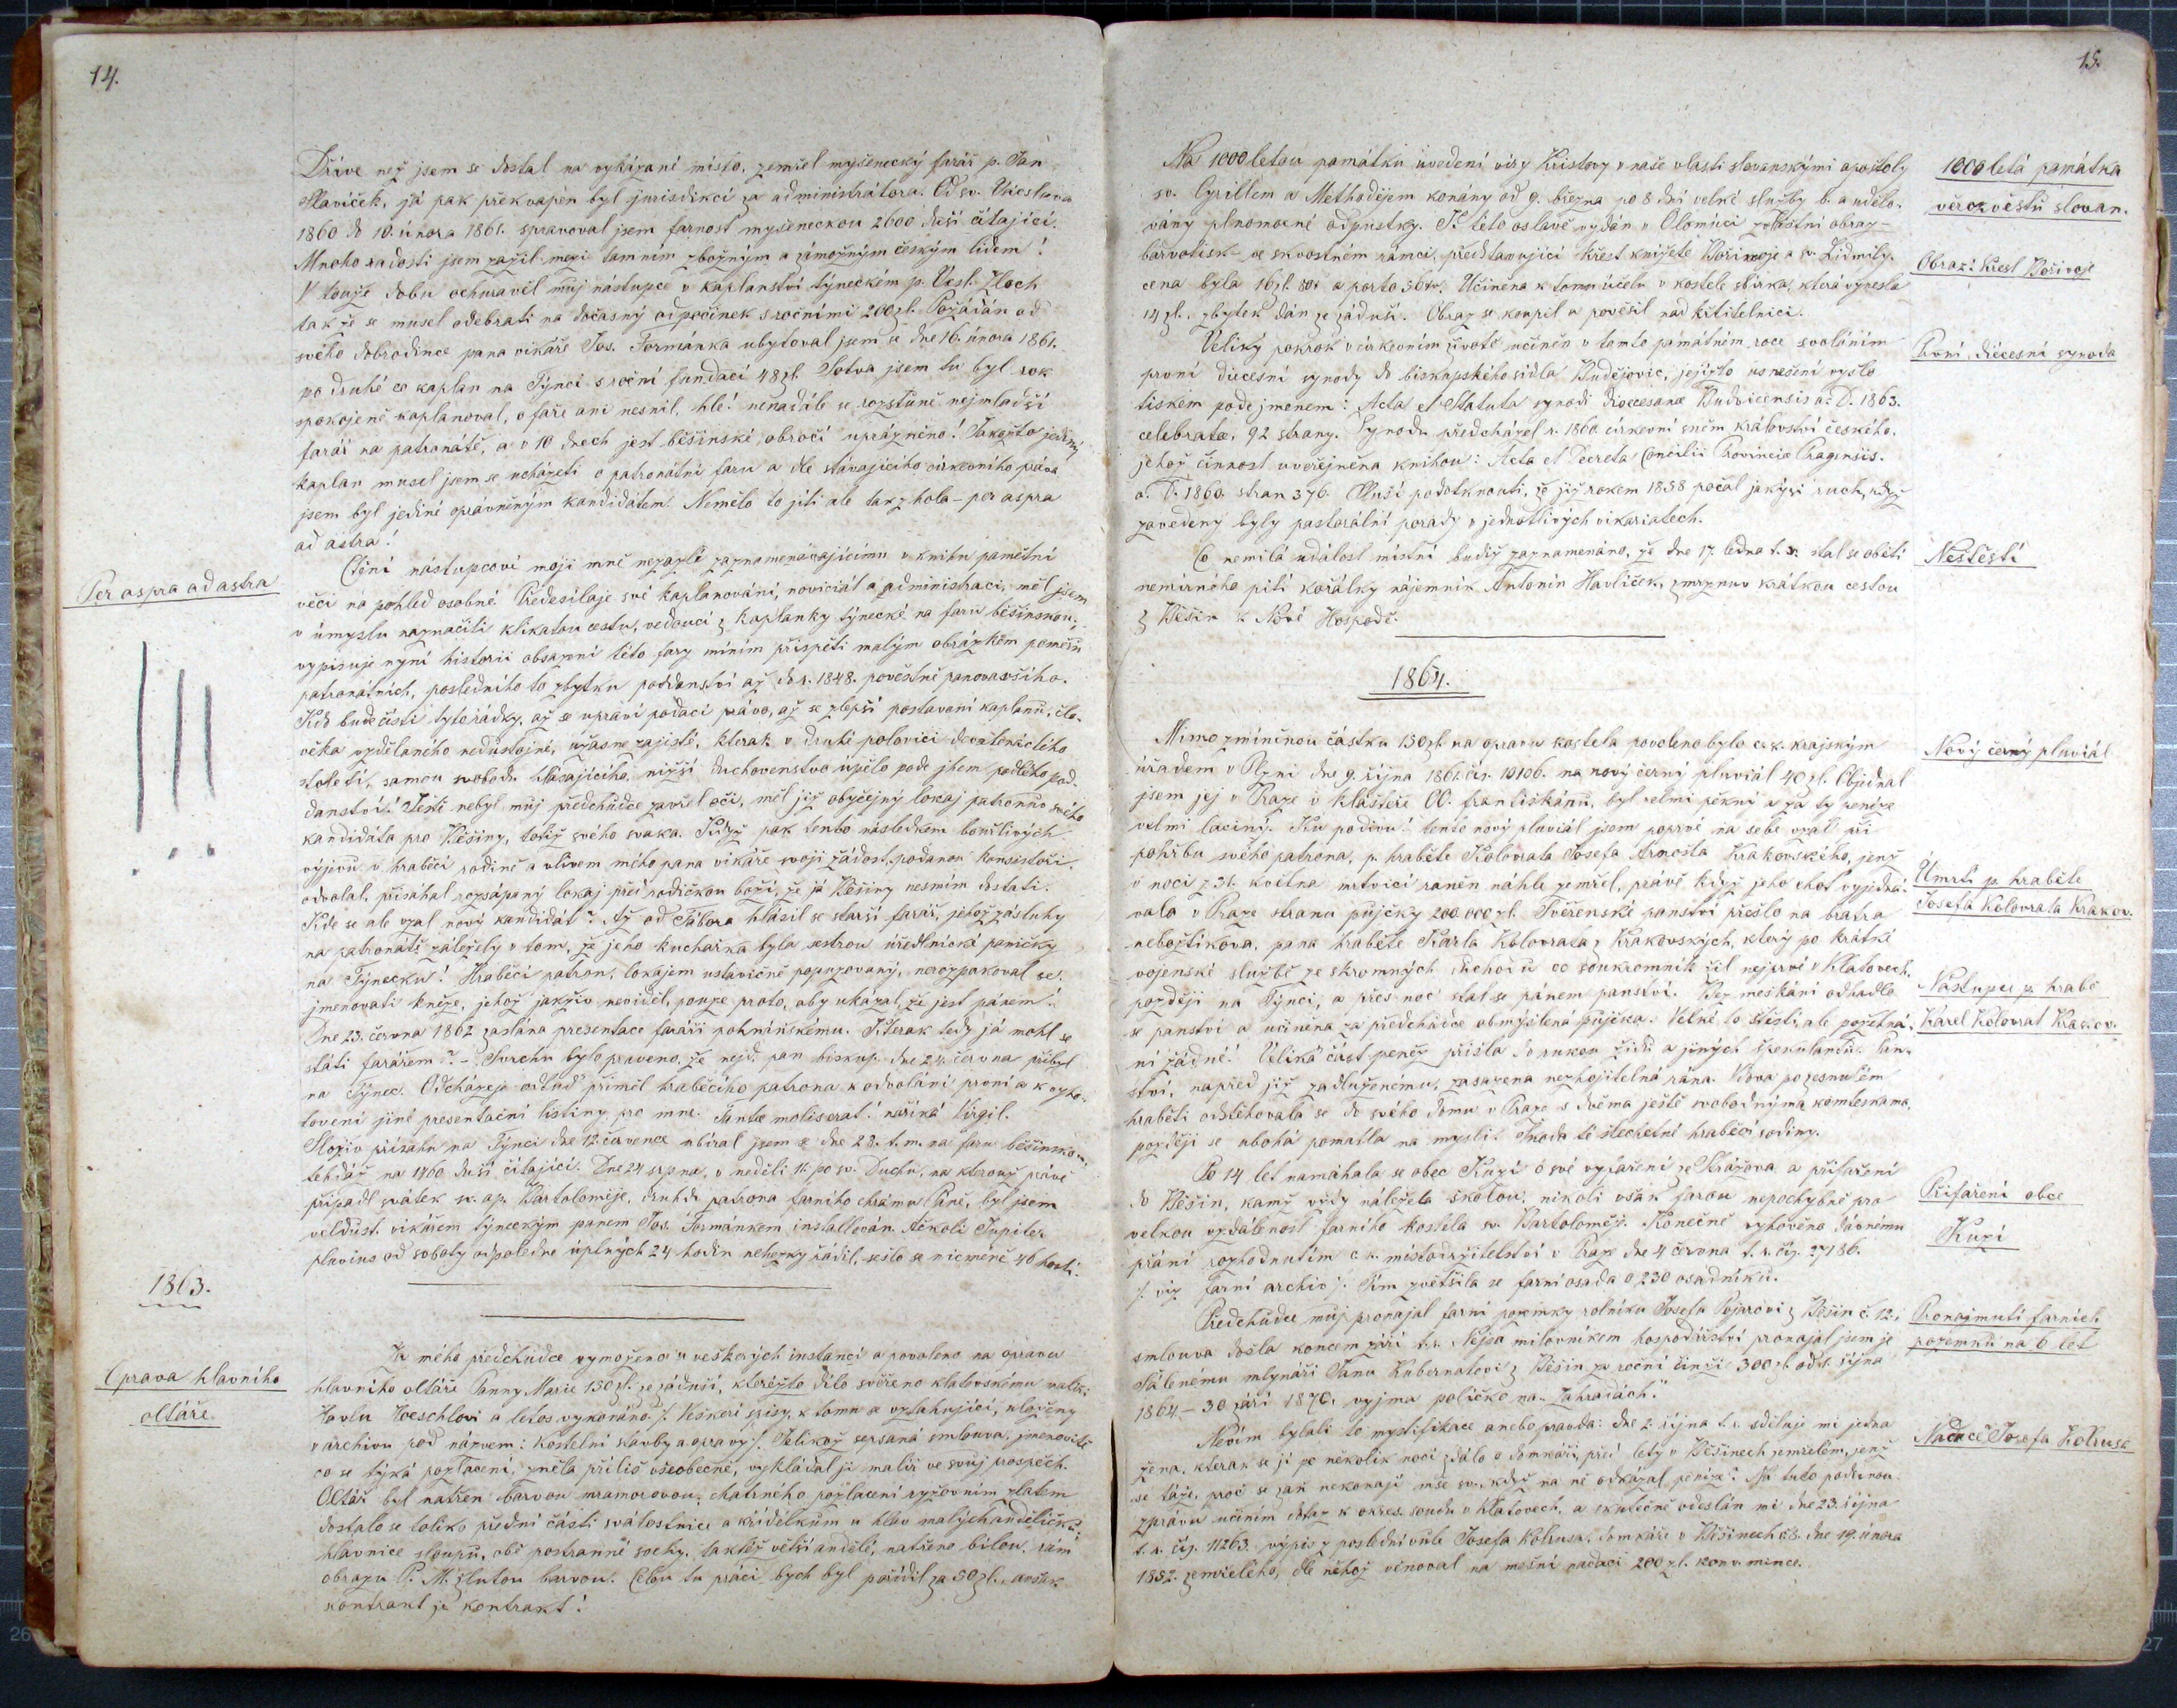 14.
Dříve než jsem se dostal na vykázané místo, zemřel myšenecký farář p. Jan
Slavíček, já pak překvapen byl jurisdikcí za administrátora. Od sv. Václava
1860 do 10. února 1861. spravoval jsem farnost myšeneckou 2600 duší čítající.
Mnoho radosti jsem zažil mezi tamním zbožným a zámožným českým lidem!
V touže dobu ochuravěl můj nástupce v kaplanství týneckém p. Václ. Hoch
tak že se musel odebrati na dočasný odpočinek s ročními 200 zl. Požádán od
svého dobrodince pana vikáře Jos. Formánka ubytoval jsem se dne 16. února 1861.
po druhé co kaplan na Týnci s roční fundací 48 zl. Sotva jsem tu byl rok
spokojeně kaplanoval, o faře ani nesnil, hle! nenadále se rozstůně nejmladší
farář na patronátě, a v 10 dnech jest běšinské obročí uprázněno! Jakožto jediný
kaplan musel jsem se ucházeti o patronátní faru a dle stávajícího církevního práva
jsem byl jediné oprávněným kandidátem. Nemělo to jíti ale tak zhola – per aspra
ad astra!
Per aspra ad astra
Ctění nástupcové moji mně nezazlí zaznamenávajícímu v knihu pamětní
věci na pohled osobné. Předesílaje své kaplanování, noviciát a administraci, měl jsem
v úmyslu naznačiti klikatou cestu, vedoucí z kaplanky týnecké na faru běšinskou;
vypisuje nyní historii obsazení této fary míním přispěti malým obrázkem poměrů
patronátních, posledního to zbytku poddanství až do r. 1848. pověstně panovavšího.
Kdo bude čísti tyto řádky, až se upraví podací právo, až se zlepší postavení kaplanů, člo-
věka vzdělaného nedůstojné, užasne zajisté, kterak v druhé polovici devatenáctého
století, samou svobodu hlásajícího, nižší duchovenstvo úpělo pode jhem podlého pod-
danství! Ještě nebyl můj předchůdce zavřel oči, měl již obyčejný lokaj patronův svého
kandidáta pro Běšiny, totiž svého svaka. Když pak tento následkem bouřlivých
výjevů v hraběcí rodině a vlivem mého pana vikáře svoji žádost, podanou konsistoři,
odvolal, přísahal rozsápaný lokaj před rodičkou boží, že já Běšiny nesmím dostati.
Kde se ale vzal nový kandidát? Až od Tábora hlásil se starší farář, jehož zásluhy
na patronátě záležely v tom, že jeho kuchařka byla sestrou úřednické paničky
na Týnecku! Hraběcí patron, lokajem ustavičně popuzovaný, nerozpakoval se
jmenovati kněze, jehož jakživ neviděl, pouze proto, aby ukázal, že jest pánem!
Dne 23. června 1862 zaslána presentace faráři pohnínskému. Kterak tedy já mohl se
státi farářem? – Svrchu bylo praveno, že nejd. pan biskup dne 24. června přibyl
na Týnec. Odcházeje odtud přiměl hraběcího patrona k odvolání první a k vyho-
tovení jiné presentační listiny pro mne. Tantae molis erat! naříká Virgil.
Složiv přísahu na Týnci dne 12. července ubíral jsem se dne 28. t. m. na faru běšinskou,
tehdáž na 1460 duší čítající. Dne 24 srpna, v neděli 11. po sv. Duchu, na kterouž právě
připadl svátek sv. ap. Bartoloměje, druhdy patrona farního chrámu Páně, byl jsem
veledůst. vikářem týneckým panem Jos. Formánkem installován. Ačkoli Jupiter
pluvius od soboty odpoledne úplných 24 hodin nehezky řádil, sešlo se nicméně 40 hostí.
1863.
Oprava hlavního
oltáře
Za mého předchůdce vymoženo u veškerých instancí a povoleno na opravu
hlavního oltáře Panny Marie 150 zl. ze záduší, kteréžto dílo svěřeno klatovskému malíři
Havlu Hoeschlovi a letos vykonáno. /. Veškeré spisy, k tomu se vztahující, uloženy
v archivu pod názvem: Kostelní stavby a opravy /. Jelikož sepsaná smlouva, jmenovitě
co se týká pozlacení, zněla příliš všeobecně, vykládal ji malíř ve svůj prospěch.
Oltář byl natřen barvou mramorovou, chatrného pozlacení ryzovním zlatem
dostalo se toliko přední části svátostnice a křidélkům u hlav malých andělíčků;
hlavnice sloupů, obě postranné sochy, taktéž větší andělé, natřeno bílou, rám
obrazu P. M. žlutou barvou. Celou tu práci bych byl pořídil za 50 zl., avšak
kontrakt je kontrakt!
15.
Na 1000letou památku uvedení víry Kristovy v naše vlasti slovanskými apoštoly
sv. Cyrillem a Methodějem konány od 9. března po 8 dní velné služby b. a udělo-
vány plnomocné odpustky. K této oslavě vydán v Olomúci zvláštní obraz –
barvotisk – ve skvostném rámci, představující křest knížete Bořivoje a sv. Lidmily.
cena byla 16 zl. 80 kr a porto 56 kr. Učiněna k tomu účelu v kostele sbírka, která vynesla
14 zl., zbytek dán ze záduší. Obraz se koupil a pověsil nad křtitelnici.
1000 letá památka
věrozvěstů slovan.
Obraz: Křest Bořivoje
Veliký pokrok v církevním životě učiněn v tomto památném roce svoláním
první diecesní synody do biskupského sídla Budějovic, jejížto usnešení vyšlo
tiskem pode jmenem: Acta et Statuta synodi dioecesanae Budvicensis a. D. 1863.
celebratae, 92 strany. Synodu předcházel r. 1860. církevní sněm království českého,
jehož činnost uveřejněna knihou: Acta et Decreta Concilii Provinciae Pragensis.
a. D. 1860. stran 376. Sluší podotknouti, že již rokem 1858 počal jakýsi ruch, když
zavedeny byly pastorální porady v jednotlivých vikariatech.
První diécesní synoda
Co nemilá událost místní budiž zaznamenáno, že dne 17. ledna t. r. stal se obětí
nemírného pití kořalky nájemník Antonín Havlíček, zmrznuv krátkou cestou
z Běšin k Nové Hospodě.
Neštěstí
1864.
Mimo zmíněnou částku 150 zl. na opravu kostela povoleno bylo c. k. krajským
úřadem v Plzni dne 9. října 1861. čís. 10106. na nový černý pluviál 40 zl. Objednal
jsem jej v Praze v klášteře OO. františkánů, byl velmi pěkný a za ty peníze
velmi laciný. Ku podivu! tento nový pluviál jsem poprvé na sebe vzal při
pohřbu svého patrona, p. hraběte Kolovrata Josefa Arnošta Krakovského, jenž
v noci z 31. května mrtvicí raněn náhle zemřel, právě když jeho choť vyjedná-
vala v Praze stranu půjčky 200.000 zl. Svěřenské panství přešlo na bratra
nebožtíkova, pana hraběte Karla Kolovrata z Krakovských, který po krátké
vojenské službě ze skromných důchodů co soukromník žil nejprvé v Klatovech,
později na Týnci, a přes noc stal se pánem panství. Bez meškání odhadlo
se panství a učiněna za předchůdce obmyšlená půjčka. Velké to štěstí, ale požehná-
ní žádné! Veliká část peněz přišla do rukou židů a jiných špekulantů. Pan-
ství, napřed již zadluženému, zasazena nezhojitelná rána. Vdova po zesnulém
hraběti odstěhovala se do svého domu v Praze s dvěma ještě svobodnýma komteskama,
později se ubohá pomátla na mysli. Škoda té šlechetné hraběcí rodiny.
Nový černý pluviál
Úmrtí p. hraběte
Josefa Kolovrata Krakov.
Nástupce p. hrabě
Karel Kolovrat Krakov.
Po 14 let namáhala se obec Kuzí o své vyfaření ze Strážova a přifaření
do Běšin, kamž vždy náležela školou, nikoli však farou nepochybně pro
velkou vzdálenost farního kostela sv. Bartoloměje. Konečně vyhověno dávnému
přání rozhodnutím c. k. místodržitelství v Praze dne 4 června t. r. čís. 27186.
/. viz farní archiv /. Tím zvětšila se farní osada o 230 osadníků.
Přifaření obce
Kuzí
Předchůdce můj pronajal farní pozemky rolníku Josefu Pojarovi z Běšin č. 12.,
smlouva došla koncem září t. r. Nejsa milovníkem hospodářství pronajal jsem je
Šálenému mlynáři Janu Kubernátovi z Běšin za roční činži 300 zl. od 1. října
1864. – 30 září 1870, vyjma políčko na „Zahradách.“
Pronajmutí farních
pozemků na 6 let
Nevím bylali to mystifikace anebo pravda: dne 2. října t. r. sděluje mi jedna
žena, kterak se jí po několik nocí zdálo o domkáři, před lety v Běšinech zemřelém, jenž
se táže, proč se zaň nekonají mše sv., když na ně odkázal peníze? Na tuto podivnou
zprávu učiním dotaz k okres. soudu v Klatovech, a skutečně odeslán mi dne 23. října
t. r. čís. 11263. výpis z poslední vůle Josefa Kotrusa, domkáře v Běšinech č. 8. dne 19. února
1852. zemřelého, dle něhož věnoval na mešní nadaci 200 zl. konv. mince.
Nadace Josefa Kotrusa